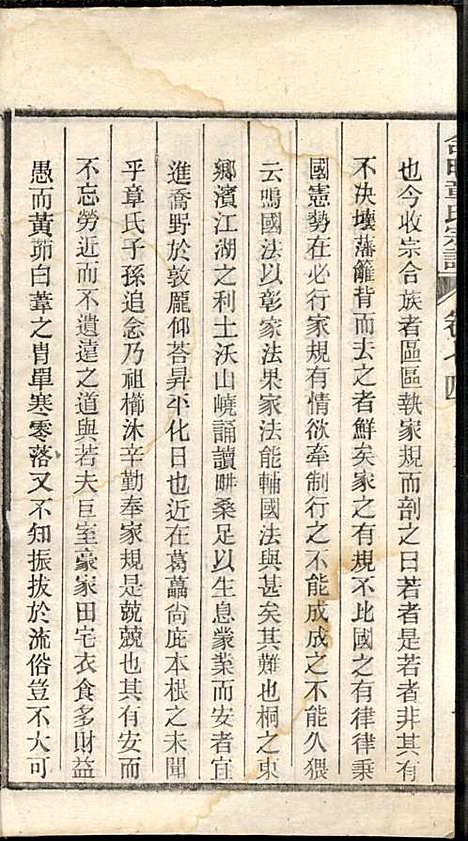 章氏宗譜
卷七四
也今收宗合族者區區執家規而剖之曰若者是若者非其有
不决壞藩籬背而去之者鮮矣家之有規不比國之有律律秉
國憲勢在必行家規有情欲牽制行之不能成成之不能久猥
云鳴國法以彰家法果家法能輔國法與甚矣其難也桐之東
鄉濱江湖之利土沃山嶢誦讀畊桑足以生息蒙業而安者宜
進喬野於敦龎仰荅昇平化日也近在葛藟尙庇本根之未聞
乎章氏子孫追念乃祖櫛沐辛勤奉家規是兢兢也其有安而
不忘勞近而不遺遠之道與若夫巨室豪家田宅衣食多財益
愚而黃茆白葦之胄單寒零落又不知振拔於流俗豈不大可